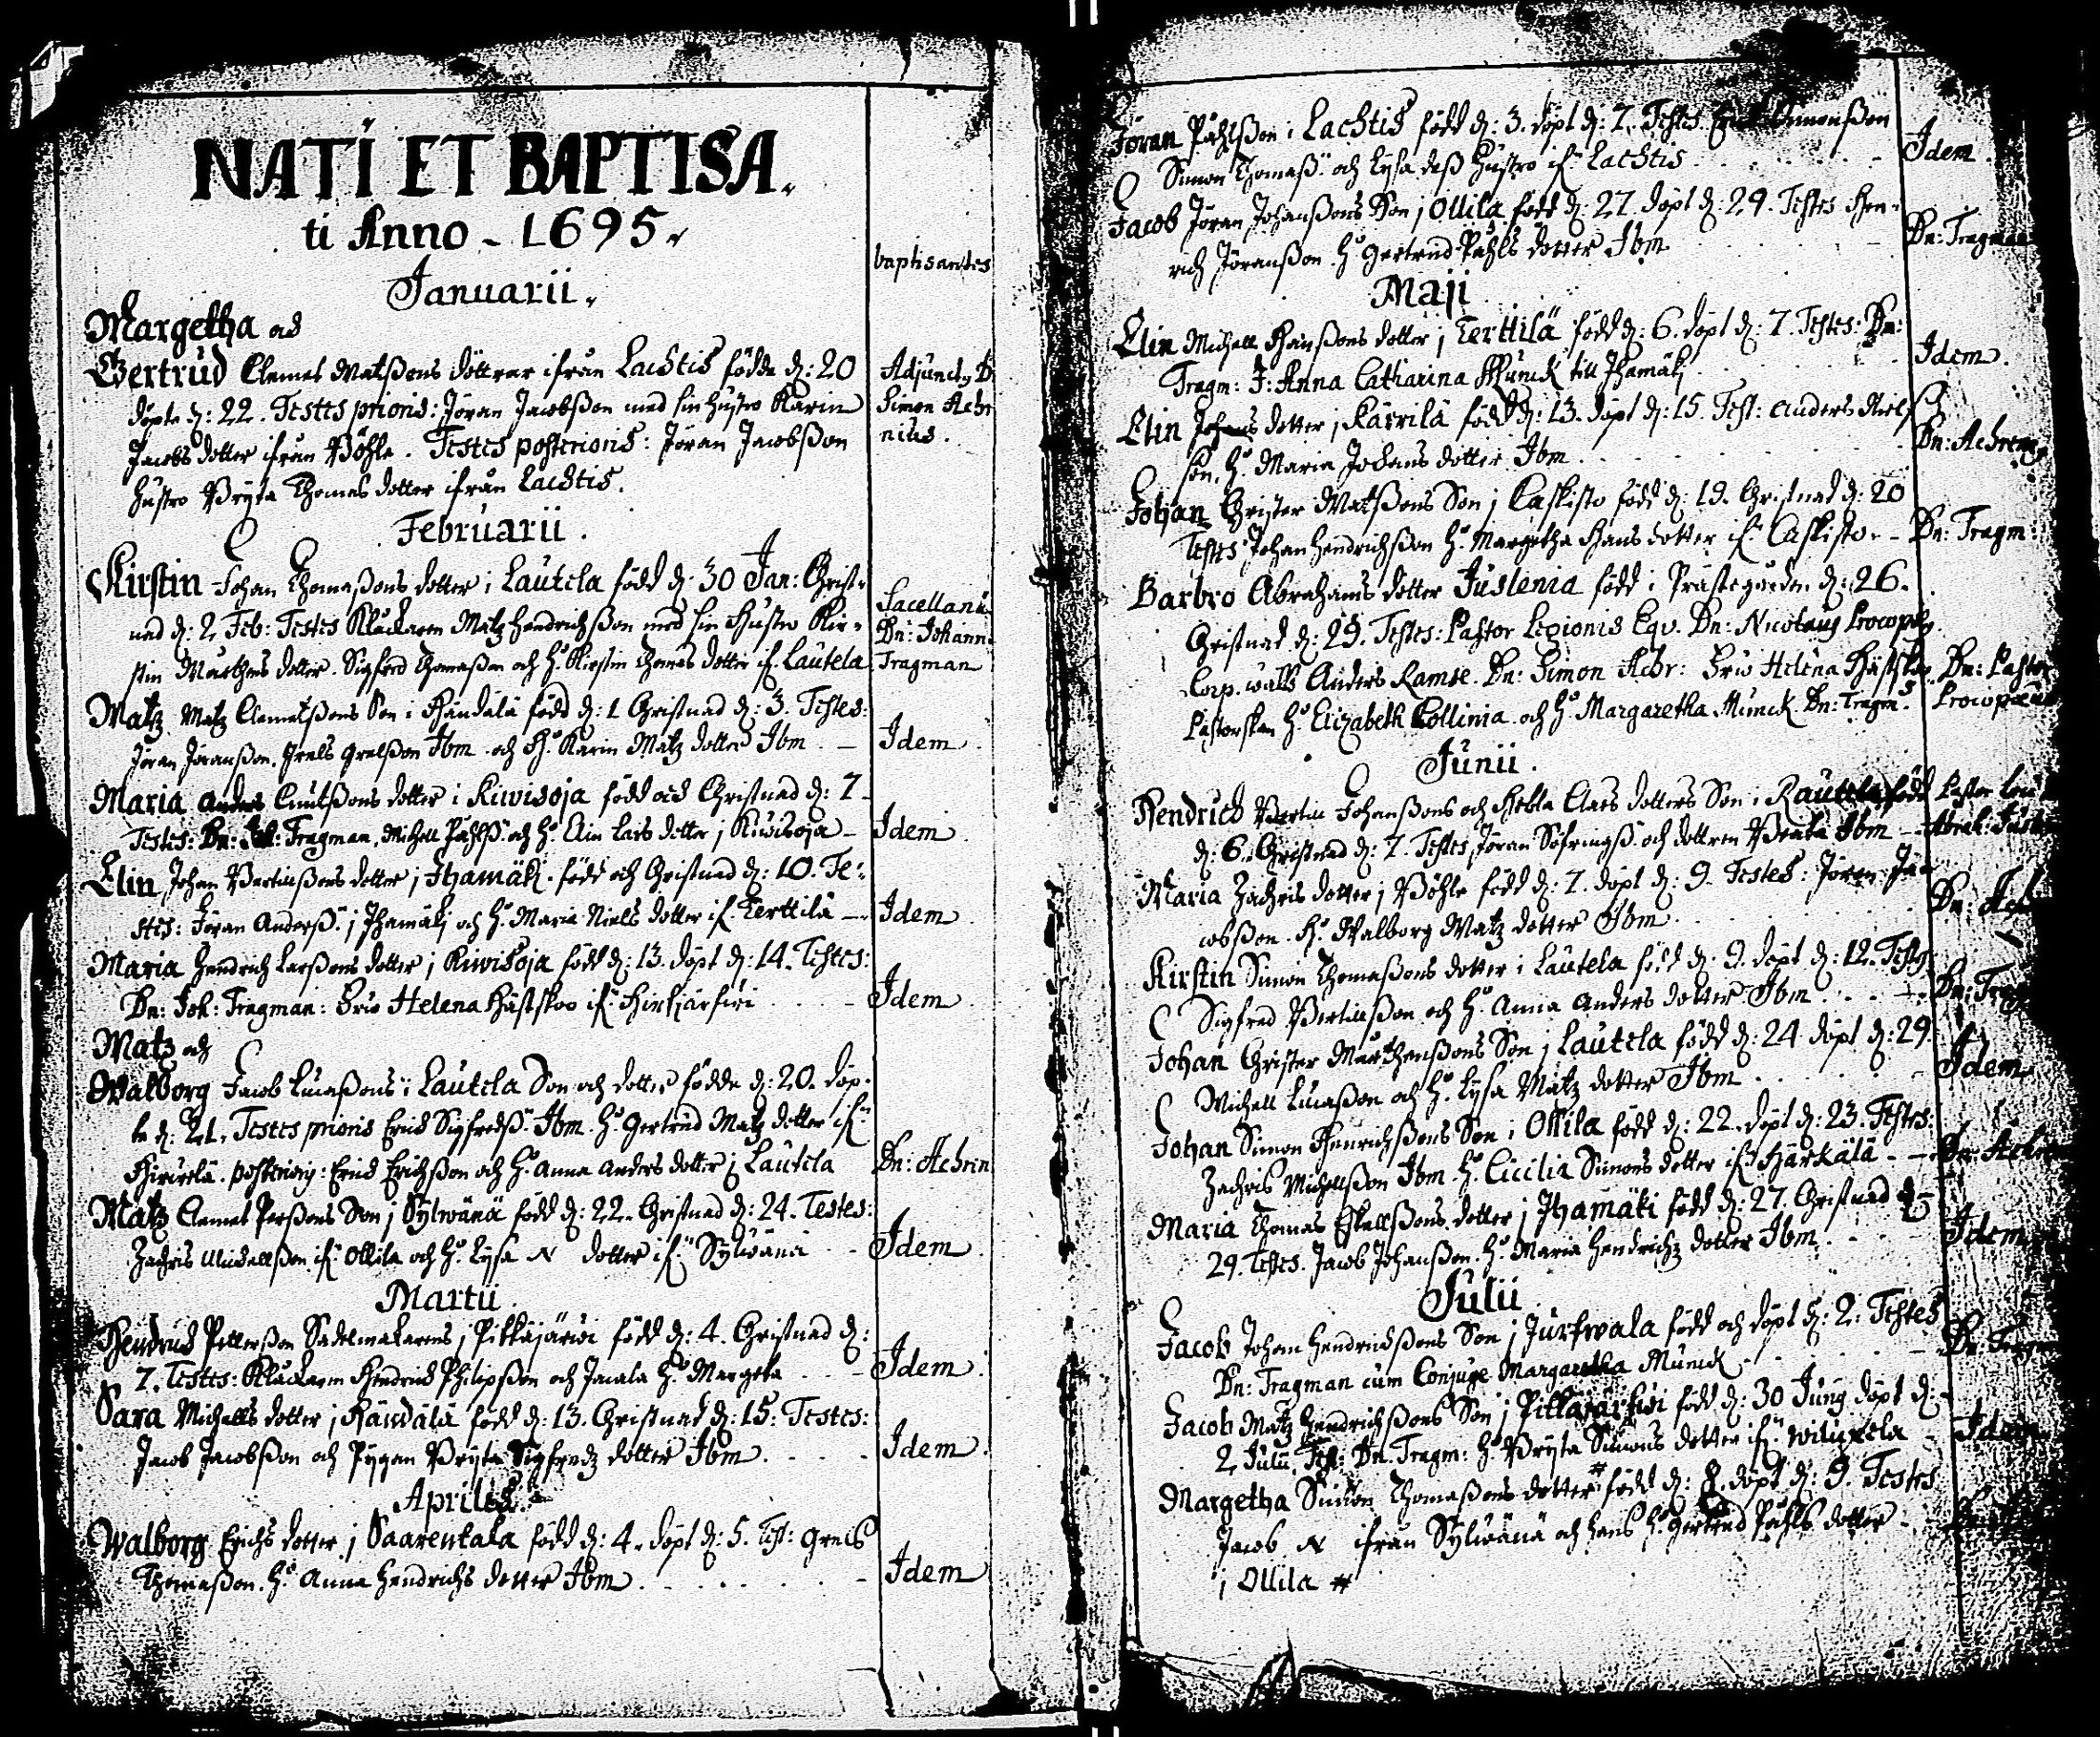 NATI ET BAPTISA.
ti Anno - 1695.
baptisantes
Januarii.
Margetha och
Gertrud Clemet Matßons döttrar ifrån Lachtis födde d: 20 Adjunct, D
döpte d: 22. Testes prioris: Jöran Jacobßon med sin hustro Karin Simon Achr
Jacobs dotter ifrån Böhle. Testes posterioris: Jöran Jacobßon nius.
hustro Bryta Thomas dotter ifrån Lachtis.
Februarii.
Kirstin Johan Thomaßons dotter i Lautela född d: 30 Jan: Christ-
nad d: 2 Feb: Testes Klåckaren Matz Hendrichßon med sin Hustro Kir- Sacellanu
stin Marthens dotter. Sigfred Thomaßon och H. Kirstin Thomas dotter if. Lautela Dn: Johann. Tragman
Matz Matz Clemetßons Son i Kändälä född d: 1 Christnad d: 3. Testes:
Jöran Jöranßon, Grels Grelßon Ibm. och H. Karin Matz dotter Ibm. - Idem.
Maria Anders Cnutßons dotter i Kiwisoja född och Christnad d: 7
Testes: Dn: Joh: Tragman, Michell Påhlß. och H. Elin Lars dotter j Kiwisoja - Idem
Elin Johan Bertilßons dotter j Ihamäki. född och Christnad d: 10. Te-
stes: Jöran Anderß. j Ihamäki och H. Maria Niels dotter if. Terttilä - Idem
Maria Hendrich Larßons dotter j Kiwisoja född d: 13. döpt d: 14. Testes:
Dn: Joh: Tragman: Bris Helena Hästsko if. Hirfjärfwi - Idem
Matz och
Walborg Jacob Lucaßons i Lautela Son och dotter födde d: 20. döp-
te d: 21. Testes prioris Erich Sigfredß. Ibm. H. Gertrud Matz dotter if.
posterioris: Erich Erichßon och H. Anna Anders dotter j Lautela Dn: Achrin
Matz Clemet Perßons Son j Sylwänä född d: 22. Christnad d: 24. Testes:
Zachris Michellßon if. Ollila och H. Lysa N dotter if. Sylwänä - Idem
Martii
Hendrich Pettersßon Sadelmakarens j Pitkäjärwi född d: 4. Christnad d:
7. Testes: Klåckaren Hendrich Philipßon och H. Margeta - Idem
Sara Michells dotter j Kändälä född d: 13. Christnad d: 15. Testes:
Jacob Jacobßon och Pygan Bryta Sigfredz dotter Ibm. - Idem.
Aprilis.
Walborg Erichs dotter j Saarentaka född d: 4. döpt d: 5. Test: Grels
Thomaßon. H. Anna Hendrichs dotter Ibm. - Idem
Jöran Påhlßon i Lachtis född d: 3. döpt d: 7. Testes Erich Simonßon
Simon Thomaß. och Lysa deß hustro if. Lachtis - Idem.
Jacob Jöran Johanßons Son j Ollila född d: 27 döpt d: 29. Testes Hen-
rich Jöranßon H. Gertrud Påhls dotter Ibm Dn: Tragman
Maji
Elin Michell Hanßons dotter j Terttilä född d: 6. döpt d: 7. Testes: Dn:
Tragm: J: Anna Catharina Munck till Ihamäki - Idem.
Elin Johans dotter j Kärrilä född d: 13. döpt d: 15. Test: Anders
son, H. Maria Johans dotter Ibm. Dn: Achren
Johan Christer Matßons Son j Caskisto född d: 19. Christnad d: 20
Testes Johan Hendrichßon H. Margetha Hans dotter if. Caskisto. - Dn: Tragm:
Barbro Abrahams dotter Juslenia född i Prästegården d: 26.
Christnad d: 29. Testes: Pastor Legionis Eqv. Dn: Nicolaus Procopæ
Corp. wälb Anders Ramse. Dn: Simon Achr: Bris Helena Hästsko. Dn: Pastor
Pastorskan H. Elizabeth Kollinia och H. Margaretha Munck. Dn: Tragm. Procopæus
Junii.
Hendrich Bertil Johanßons och Hebla Clas dotters Son i Rautela född Pastor loci
d: 6. Christnad d: 7. Testes Jöran Sofringß. och dottren Beata Ibm - Abrah: Jusle
Maria Zachris dotter j Böhle född d: 7. döpt d: 9. Testes: Jöran Ja-
cobßon. H. Walborg Matz dotter Ibm Dn: Ach
Kirstin Simon Thomaßons dotter i Lautela född d: 9. döpt d: 12. Testes
Sigfred Bertilßon och H. Anna Anders dotter Ibm. Dn: Trag
Johan Christer Marthenßons Son j Lautela född d: 24 döpt d: 29.
Michell Lucaßon och H. Lysa Matz dotter Ibm - Idem
Johan Simon Henrichßons Son i Ollila född d: 22. döpt d: 23. Testes:
Zachris Michellßon Ibm. H. Cicilia Simons dotter if. Härkälä - Dn: Achren
Maria Thomas Eskellßons dotter j Ihamäki född d: 27. Christnad d:
29. Testes. Jacob Johanßon. H. Maria Hendrichz dotter Ibm. - Idem
Julii
Jacob Johan Hendrichßons Son j Jurfwala född och döpt d: 2. Testes
Dn: Tragman cum Conjuge Margaretha Munck - Dn: Tragm
Jacob Matz Hendrichßons Son j Pitkäjärfwi född d: 30 Junij döpt d:
2 Julii. Test: Dn. Tragm: H. Bryta Simons dotter if. - Idem
Margetha Simon Thomaßons dotter # född d: 8. döpt d: 9. Testes
Jacob N ifrån Sylwänä och hans H. Gertrud Påhls dotter -
j Ollila #